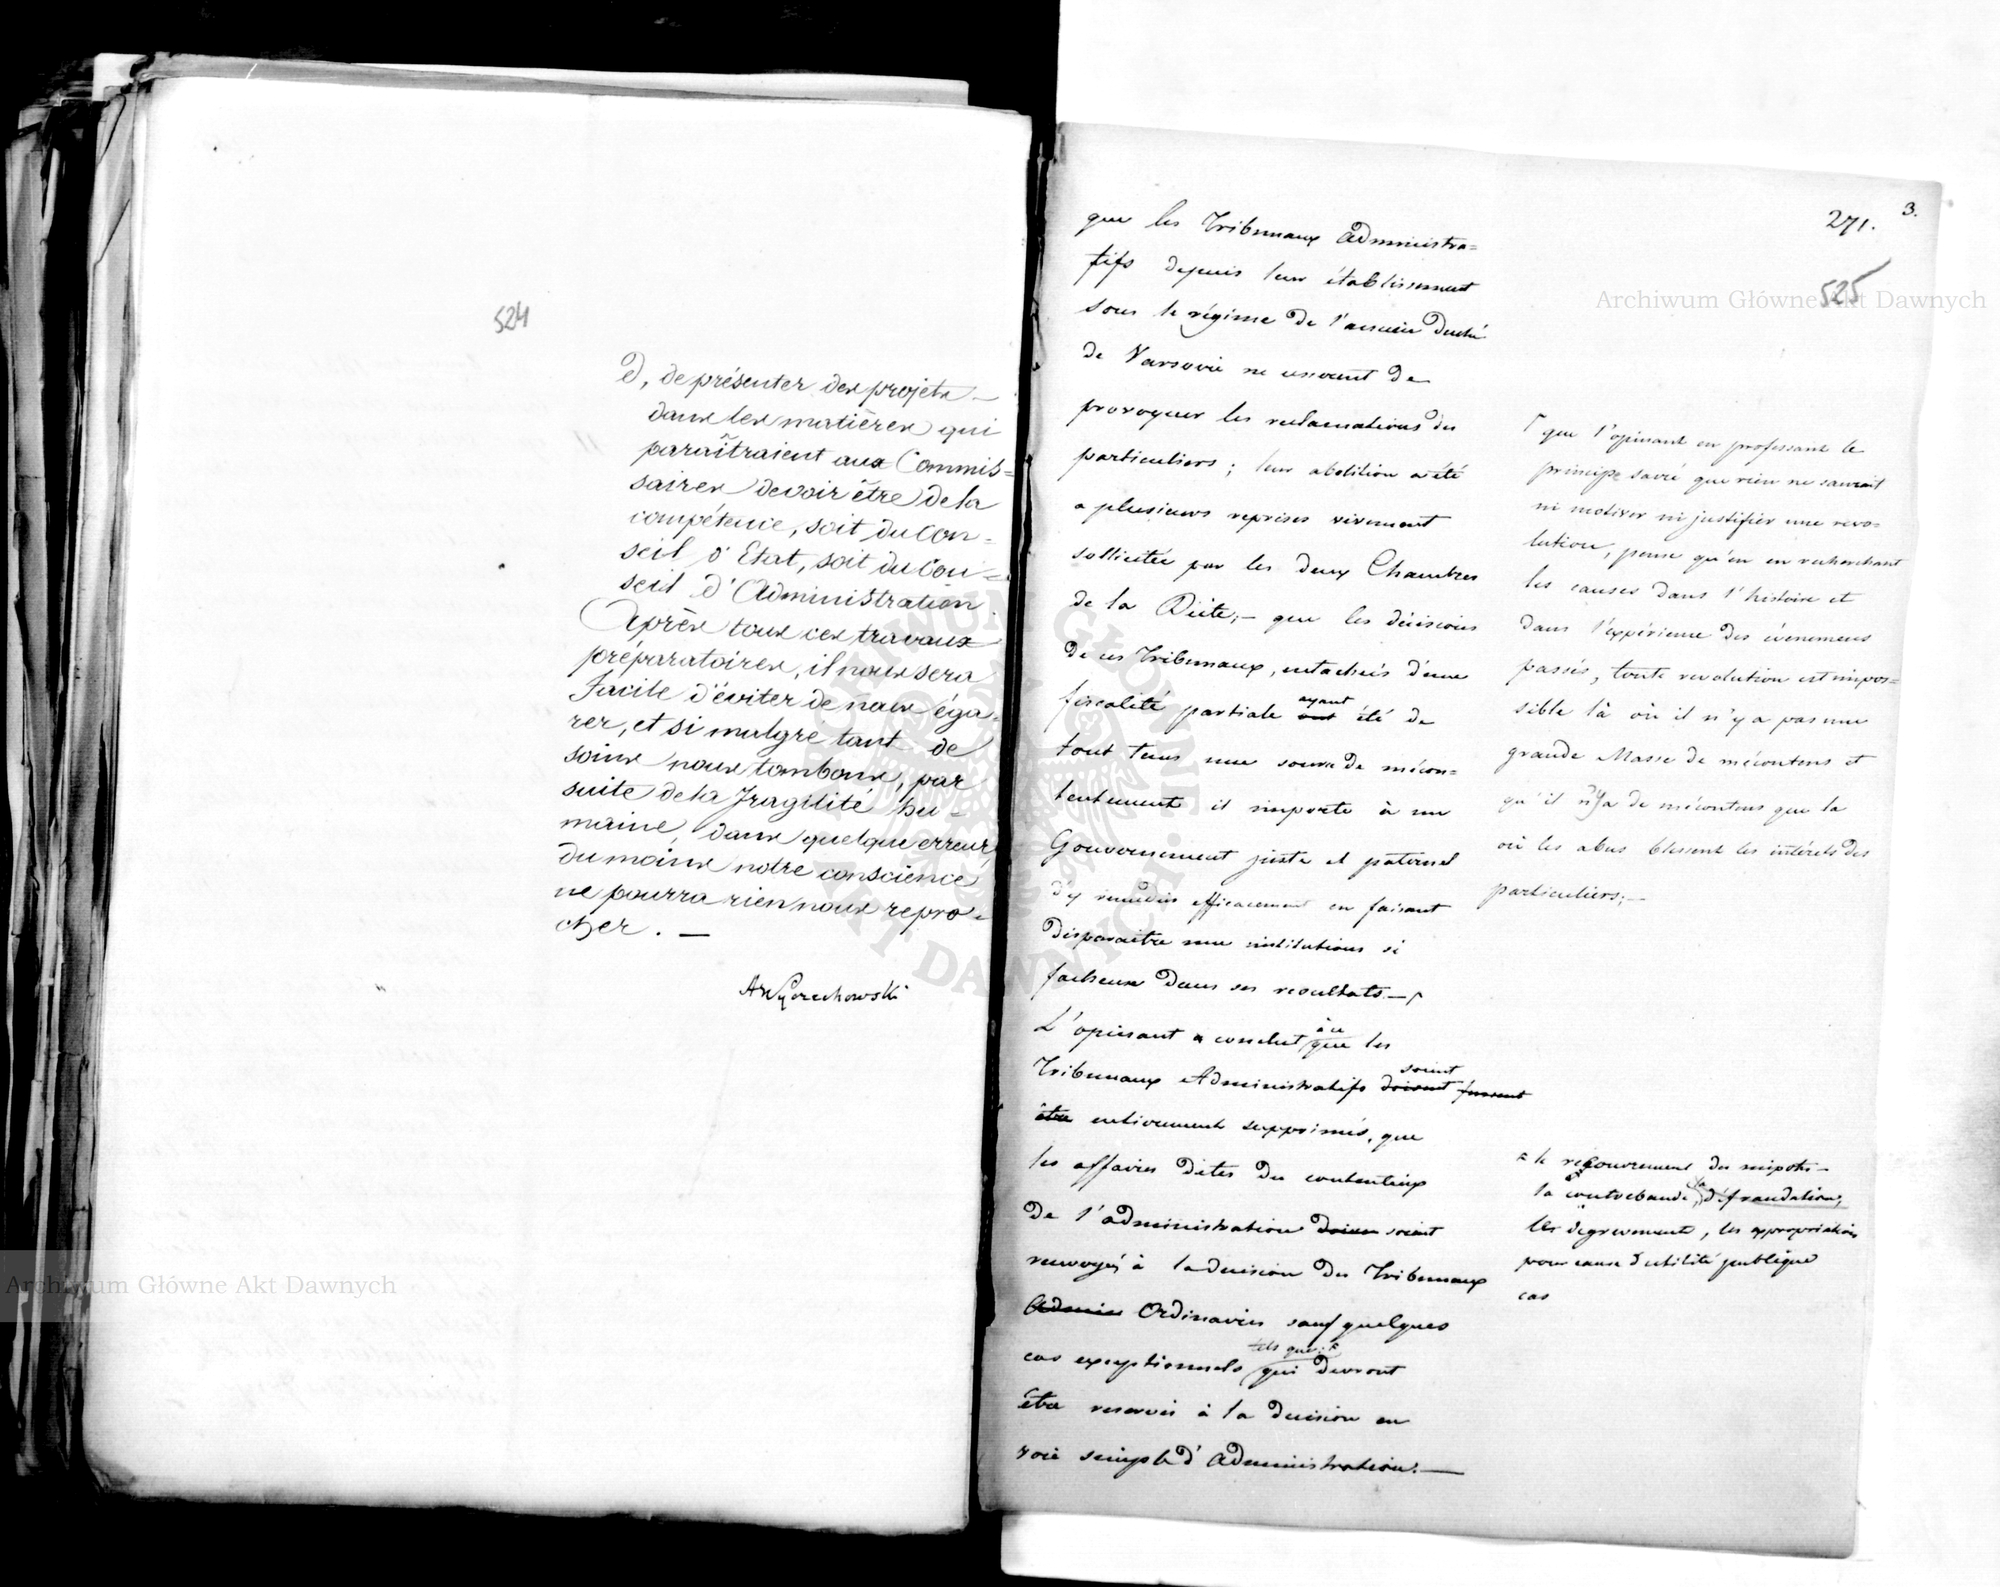 524
d, de présenter des projets
dans les matières qui
paraîtraient aux Commis=
saires devoir être de la
compétence, soit du Con=
seil d'Etat, soit du Con=
seil d'Administration.
Après tous ces travaux
préparatoires, il nous sera
facile d'éviter de nous éga=
rer, et si malgré tant de
soins nous tombons, par
suite de la fragilité hu=
maine, dans quelque erreur,
du moins notre conscience
ne pourra rien nous repro=
cher. —
Wyczechowski
271. 3.
525
que les Tribunaux Administra=
tifs depuis leur établissement
sous le régime de l'ancien Duché
de Varsovie ne cessent de
provoquer les reclamations des
particuliers; leur abolition a été
a plusieurs reprises vivement
sollicitée par les deux Chambres
de la Diète,— que les décisions
de ces Tribunaux, entachés d'une
ayant
fiscalité partiale ont été de
tout tems une source de mécon=
tentement il importe à un
Gouvernement juste et paternel
d'y remedier efficacement en faisant
disparaitre une institutions si
facheuse dans ses resultats.—
à ce
L'opinant a conclut que les
soient
Tribunaux Administratifs doivent fussent
être entierement supprimés, que
les affaires dites du contentieux
de l'administration soient
renvoyés à la decision des Tribunaux
Admin Ordinaires sauf quelques
tels que:
cas exceptionnels qui devront
être reservés à la decision en
voie simple d'Administration.—
que l'opinant en professant le
principe sacré que rien ne saurait
ni motiver ni justifier une revo=
lution, pense qu'en en recherchant
les causes dans l'histoire et
dans l'expérience des évenemens
passés, toute revolution est impos=
sible là où il n'y a pas une
grande Masse de mécontens et
qu'il n'y a de mécontens que la
où les abus blessent les intérêts des
particuliers;—
le recouvrement des impots—
la contrebande, la défraudation,
les degrevement, les appropriation
pour cause d'utilité publique
cas
Archiwum Główne Akt Dawnych
Archiwum Główne Akt Dawnych
ARCHIWUM GŁÓWNE AKT DAWNYCH